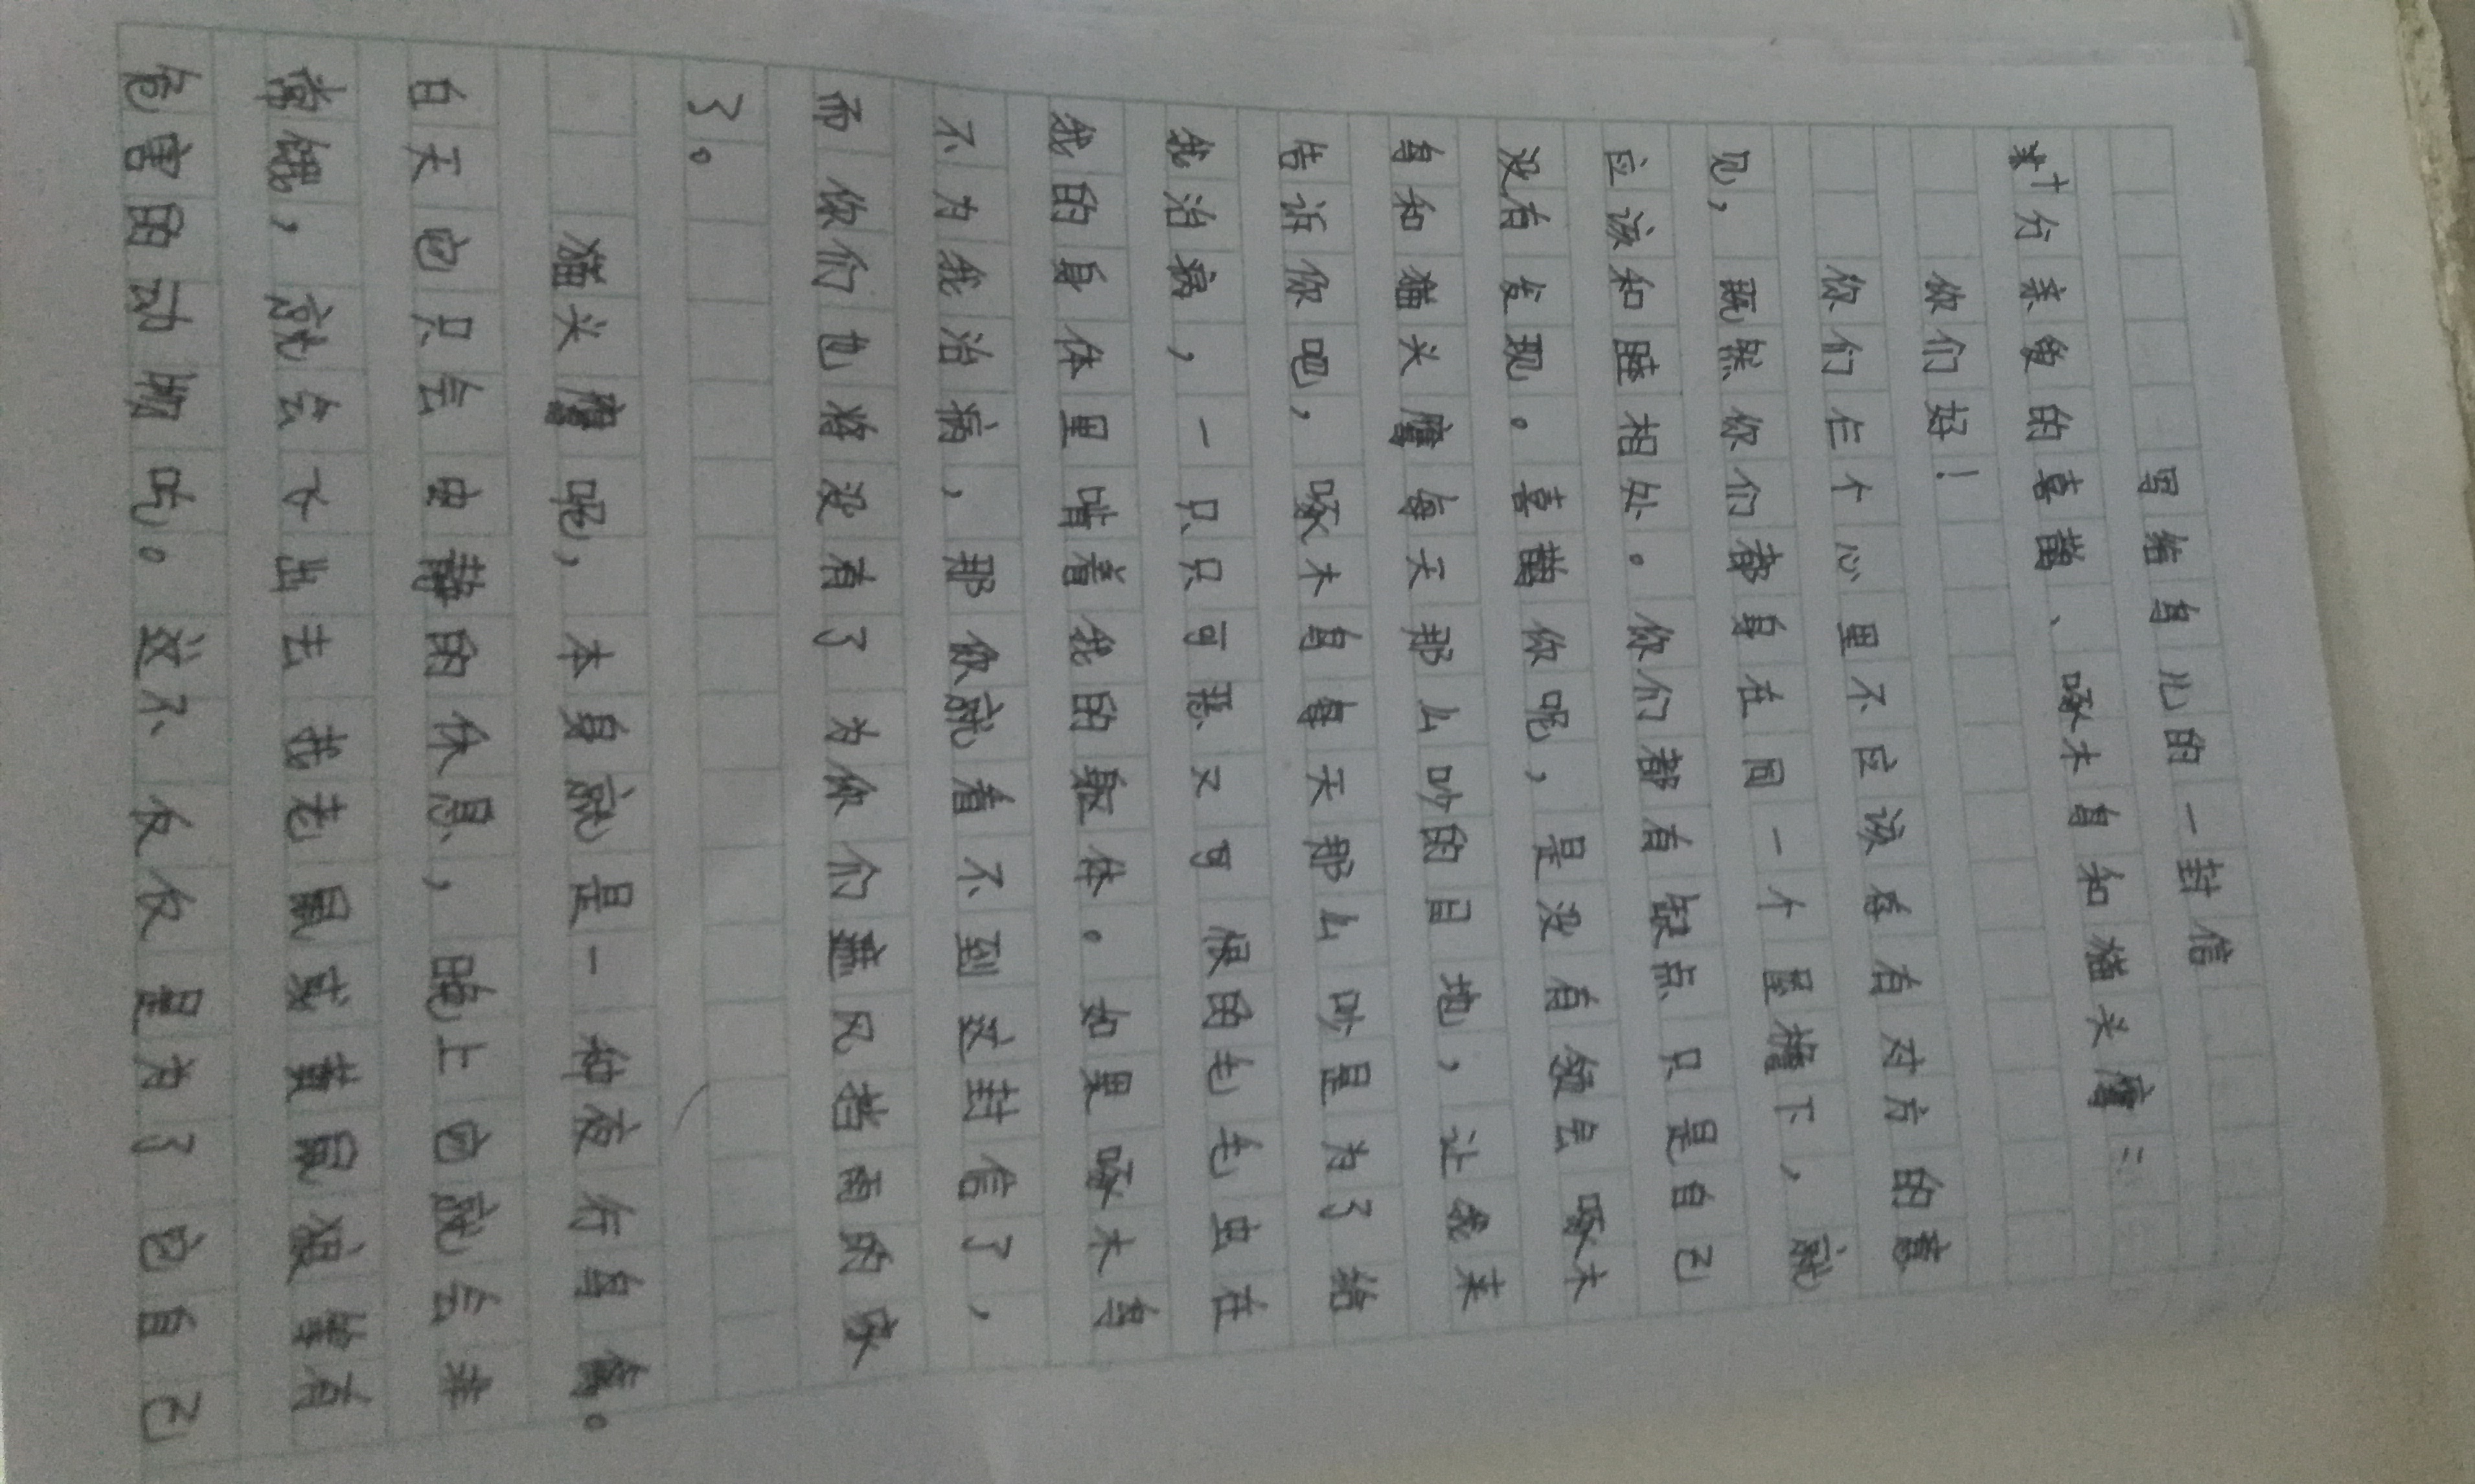 写给鸟儿的一封信
十分亲爱的喜鹊、啄木鸟和猫头鹰:
你们好!
你们仨个心里不应该存有对方的意
见,既然你们都身在同一个屋檐下,就
应该和睦相处。你们都有缺点只是自己
没有发现。喜鹊你呢,是没有领会啄木
鸟和猫头鹰每天那么吵的目地,让我来
告诉你吧,啄木鸟每天那么吵是为了给
我治病,一只只可恶又可恨的毛毛虫在
我的身体里啃着我的躯体。如果啄木鸟
不为我治病,那你就看不到这封信了,
而你们也将没有了为你们遮风挡雨的家
了。
猫头鹰呢,本身就是一种夜行鸟禽。
白天它只会安静的休息,晚上它就会非
常饿,就会飞出去找老鼠或黄鼠狼等有
危害的动物吃。这不仅仅是为了它自己